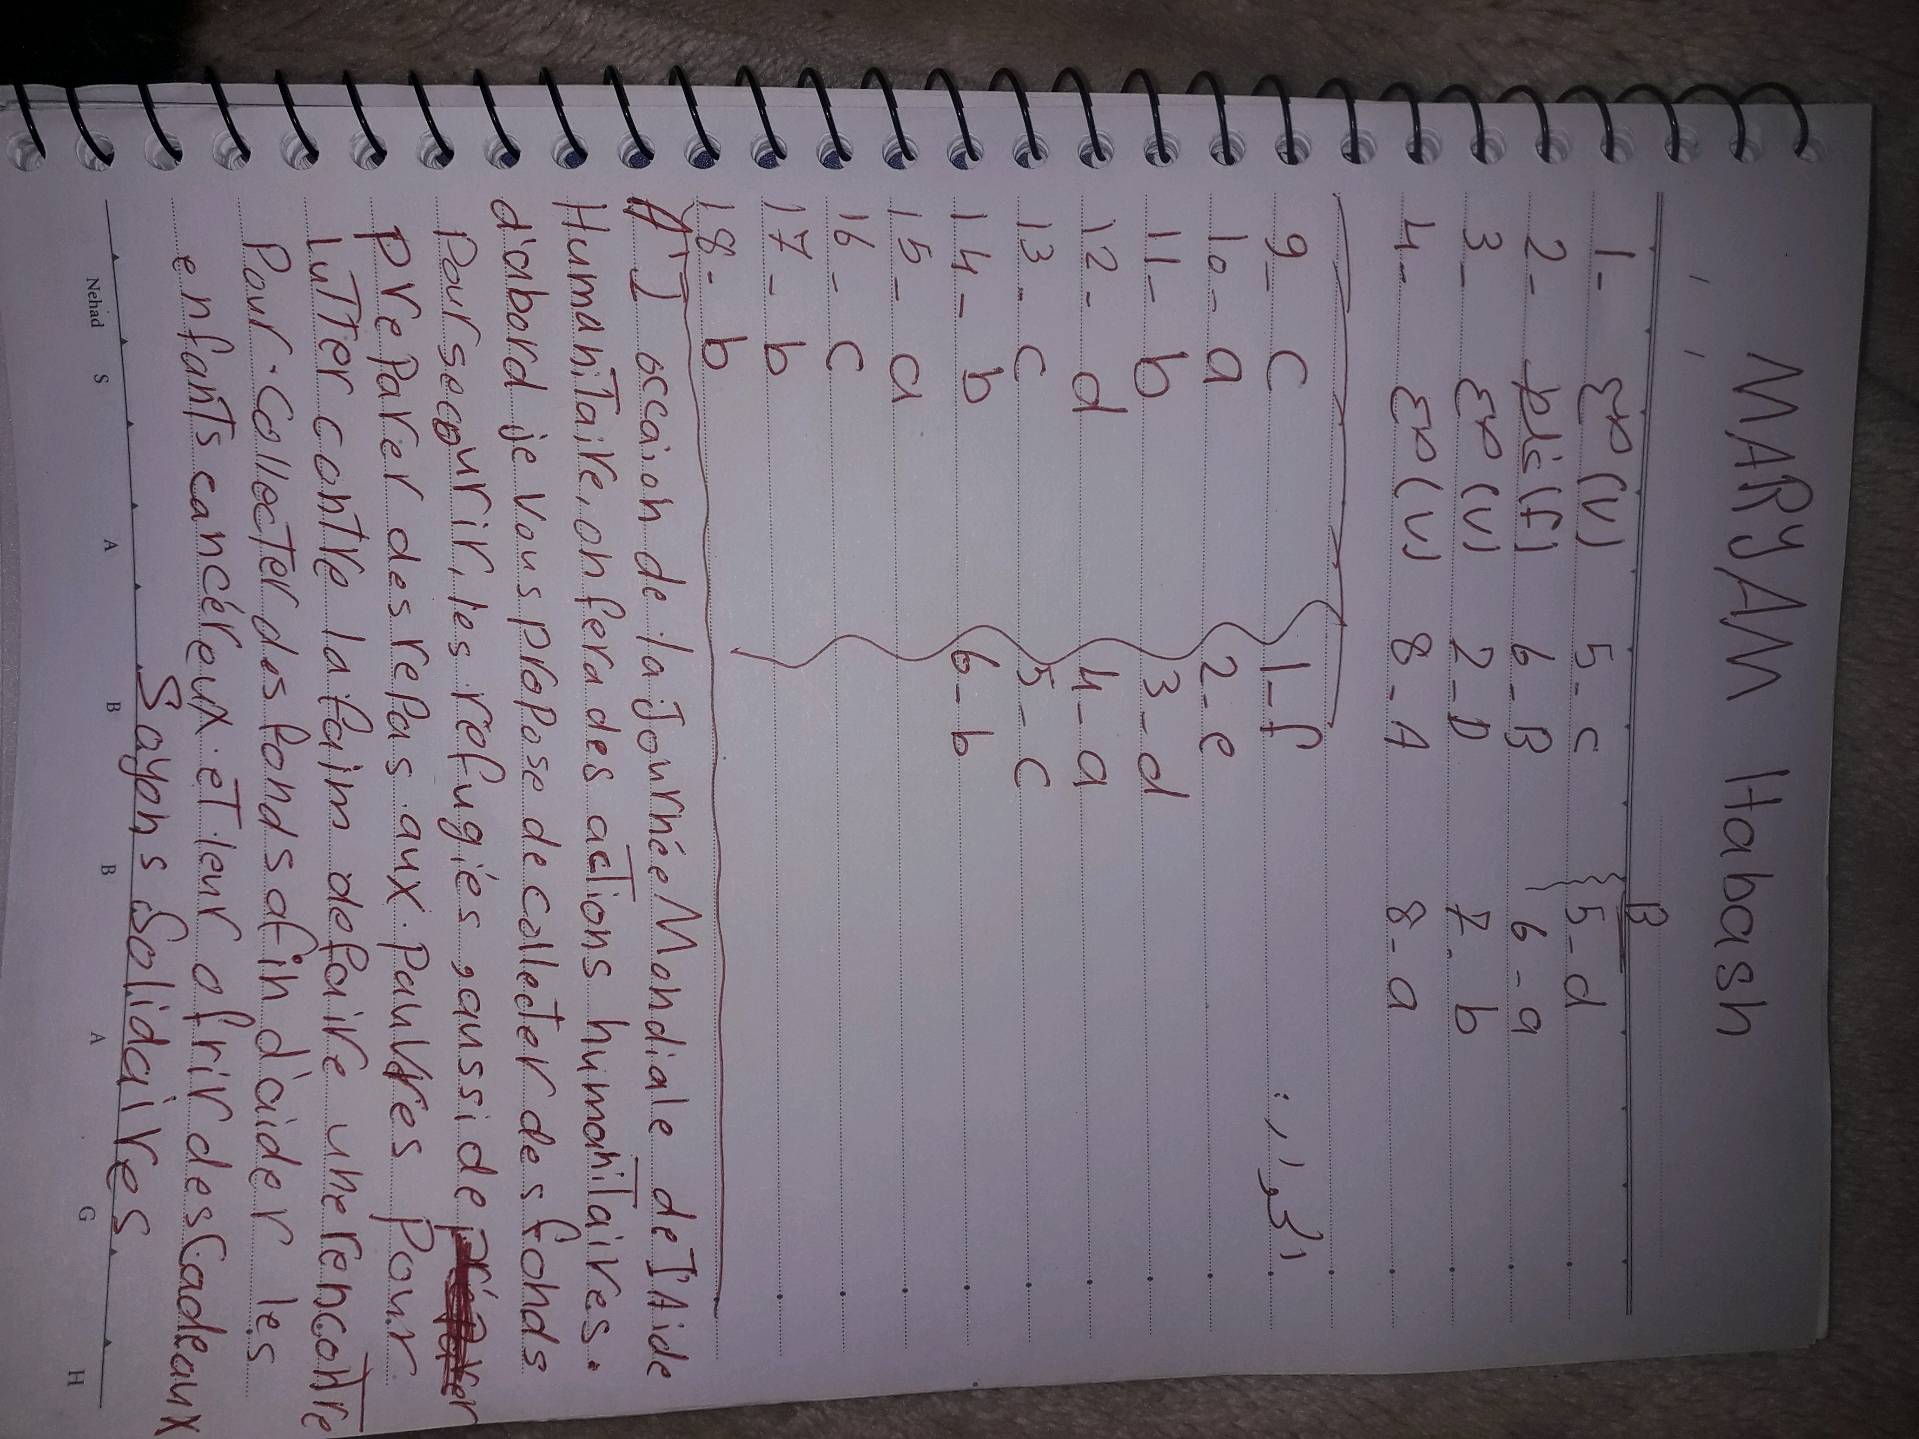 MARYAM Habash
B
1- صح (V) 5-c 5-d
2- خطأ (f) 6-B 6-a
3- صح (V) 2-D 7-b
4- صح (V) 8-A 8-a
9- c 1-f الحوار:
10- a 2-e
11- b 3-d
12- d 4-a
13- c 5-c
14- b 6-b
15- a
16- c
17- b
18- b
A l'occaion de la Journée Mondiale de l'Aide
Humanitaire, on fera des actions humanitaires.
d'abord je vous propose de collecter des fonds
pour secourir les réfugiés, aussi de
préparer des repas aux pauvres pour
lutter contre la faim de faire une rencontre
Pour collecter des fonds afin d'aider les
enfants cancéreux et leur ofrir des Cadeaux
Sayons Solidaires
Nehad S A B B A G H